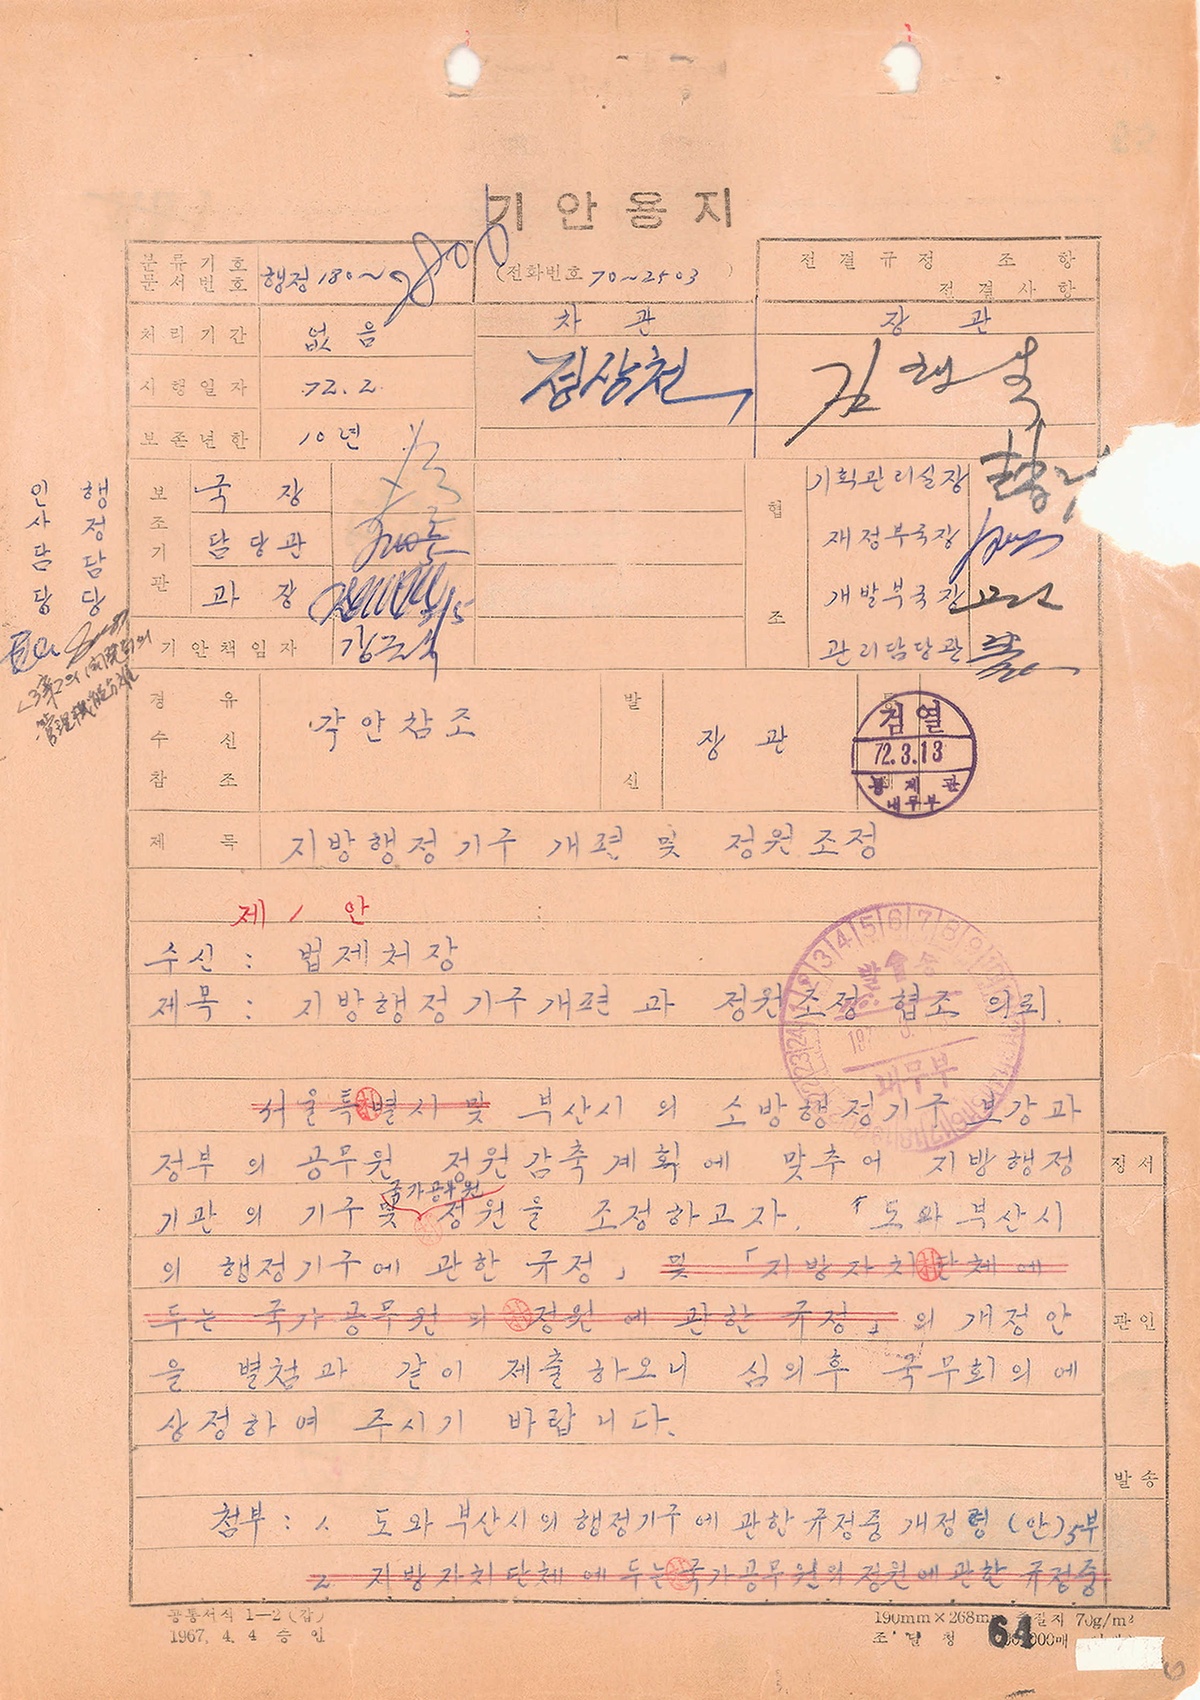 기안용지
분류기호 문서번호 행정180~2800 (전화번호 70~2503 )
전결규정 조 항
전결사항
처리기간 없음
차관 장관
시행일자 72. 2.
정상천
보존년한 10년
보조기관
국장
담당관
과장
기안책임자 김근식
협조
기획관리실장
재정부국장
개발부국장
관리담당관
행정담당
인사담당
경유
수신
참조
각안참조
발신
장관
검열
72.3.13
통제관
내무부
제목 지방행정기구 개편 및 정원조정
제 1 안
수신 : 법제처장
제목 : 지방행정기구개편과 정원조정 협조 의뢰.
서울특별시 및 부산시의 소방행정기구 보강과
정부의 공무원 정원감축계획에 맞추어 지방행정
국가공무원
기관의 기구 및 정원을 조정하고자, 「도와 부산시
의 행정기구에 관한 규정」 및 「지방자치단체에
두는 국가공무원의 정원에 관한 규정」의 개정안
을 별첨과 같이 제출하오니 심의후 국무회의에
상정하여 주시기 바랍니다.
정서
관인
발송
첨부 : 1. 도와 부산시의 행정기구에 관한 규정중 개정령 (안) 5부
2. 지방자치단체에 두는 국가공무원의 정원에 관한 규정중
공통서식 1—2 (갑)
1967. 4. 4 승인
190mm×268mm 70g/m²
조달청
64